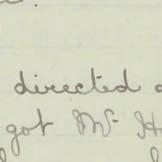 directed
got Mr. H